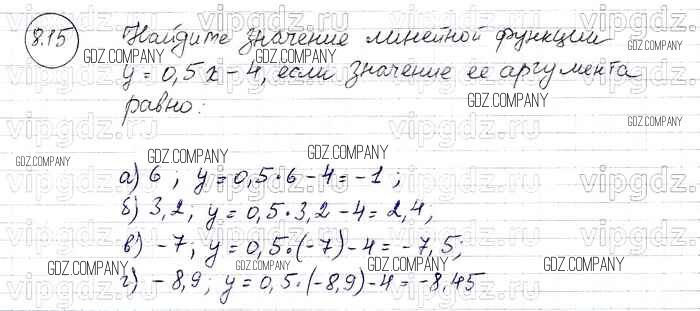 8.15 Найдите значение линейной функции
y = 0,5x - 4, если значение ее аргумента
равно:
а) 6 ; y = 0,5·6 - 4 = -1 ;
б) 3,2; y = 0,5·3,2 - 4 = 2,4,
в) -7; y = 0,5·(-7) - 4 = -7,5;
г) -8,9; y = 0,5·(-8,9) - 4 = -8,45
vipgdz.ru
GDZ.COMPANY